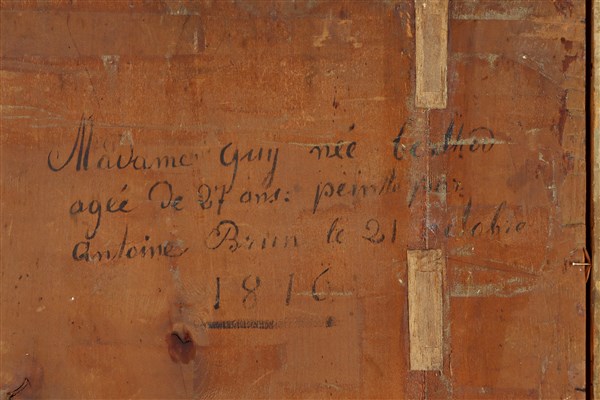 Madame Guy néé
agéé De 27 ans: peinte par
antoine Brun le 21 octobre
1816